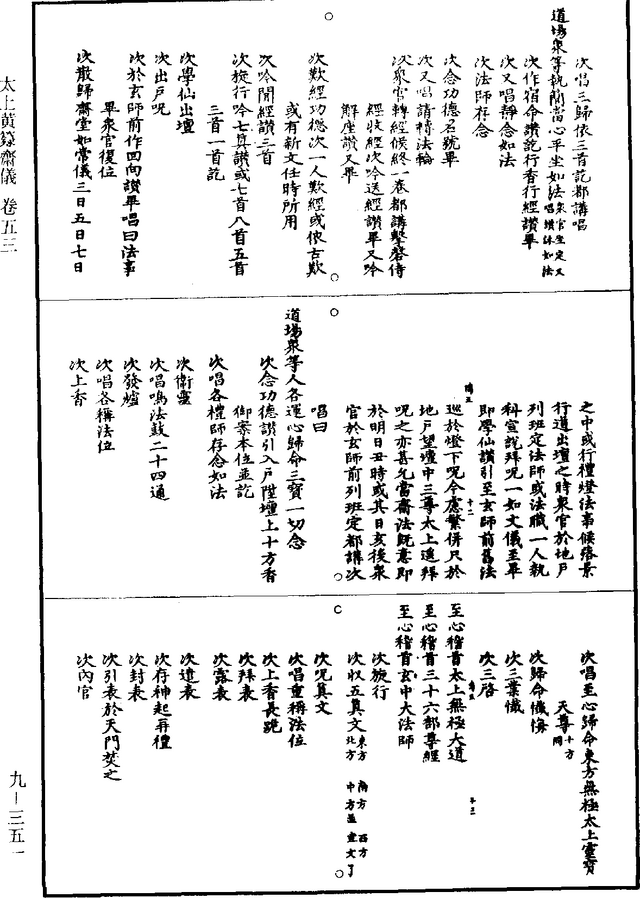 次唱三歸依三首訖都講唱
道場衆等執簡當心平坐如法衆官坐定又唱讚詠如法
次作宿命讚訖行香行經讚畢
次又唱靜念如法
次法師存念
次念功德名號畢
次又唱請轉法輪
次衆官轉經候終一卷都講擊磬侍
經收經次吟送經讚畢又吟
解座讚又畢
次歎經功德次一人歎經或依古歎
或有新文任時所用
次吟閱經讚三首
次旋行吟七真讚或七首八首五首
三首一首訖
次學仙出壇
次出戶呪
次於玄師前作回向讚畢唱曰法事
畢衆官復位
次散歸齋堂如常儀三日五日七日
之中或行禮燈法事候落景
行道出壇之時衆官於地戶
列班定法師或法職一人執
科宣說拜呪一如文儀至畢
即學仙讚引至玄師前舊法
巡於燈下呪今慮繁併只於
地戶望壇中三尊太上遙拜
呪之亦甚允當齋法既意即
於明日丑時或其日亥後衆
官於玄師前列班定都講次
唱曰
道場衆等人各運心歸命三寶一切念
次念功德讚引入戶陞壇上十方香
御案本位並訖
次唱各禮師存念如法
次衛靈
次唱鳴法鼓二十四通
次發爐
次唱各稱法位
次上香
次唱至心歸命東方無極太上靈寶
天尊十方同
次歸命懺悔
次三業懺
次三啓
至心稽首太上無極大道
至心稽首三十六部尊經
至心稽首玄中大法師
次旋行
次收五真文東方 南方 西方 北方 中方並宣文了
次呪真文
次唱重稱法位
次上香長跪
次拜表
次露表
次遣表
次存神起再禮
次封表
次引表於天門焚之
次內官
太上黃籙齋儀 卷五三
九—三五一